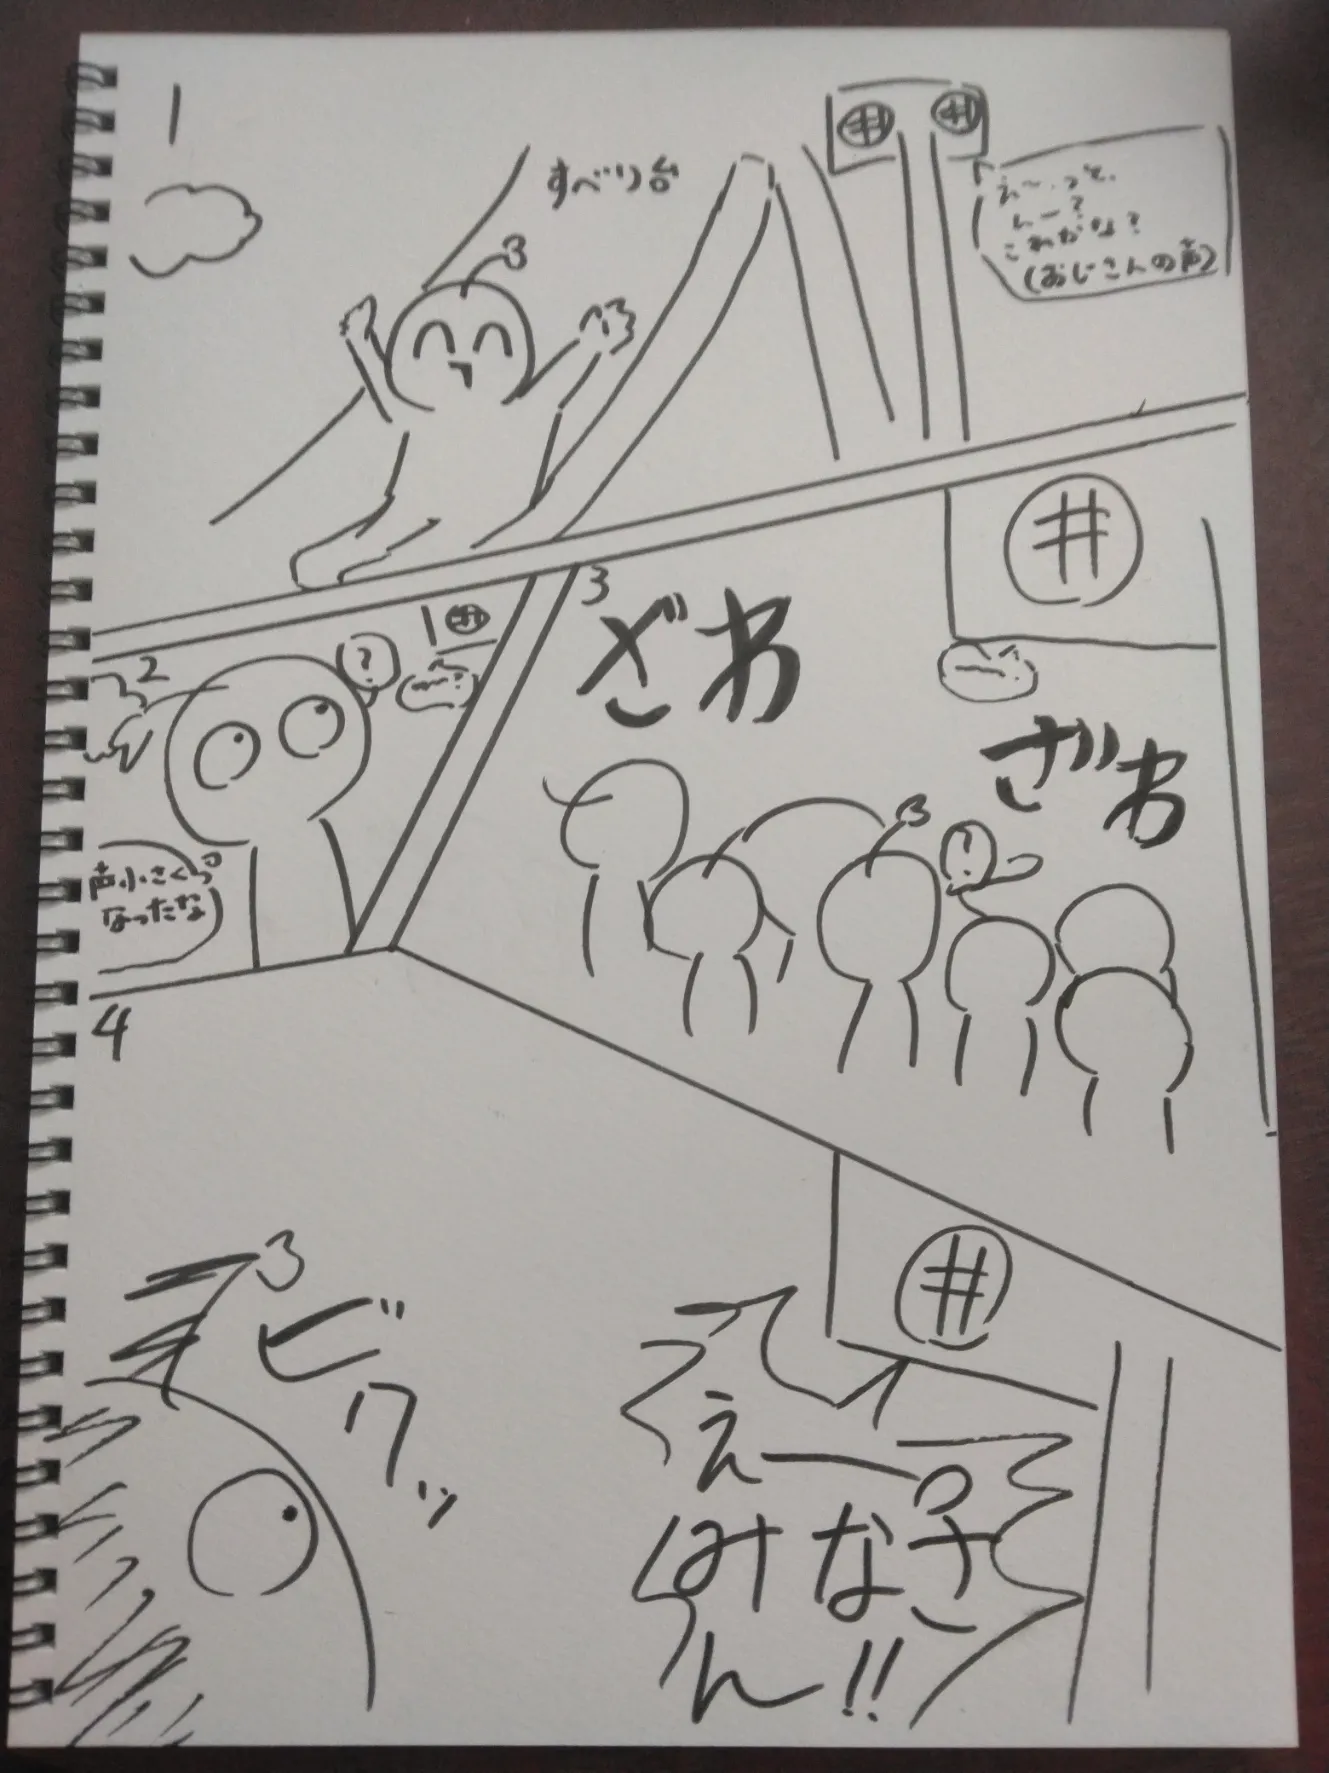 1
すべり台
え〜っと、
んー?
これかな?
(おじさんの声)
2
?
声小さくなったな
3
ざわ
ざわ
?
4
ビクッ
えー。
みなさ
ん!!